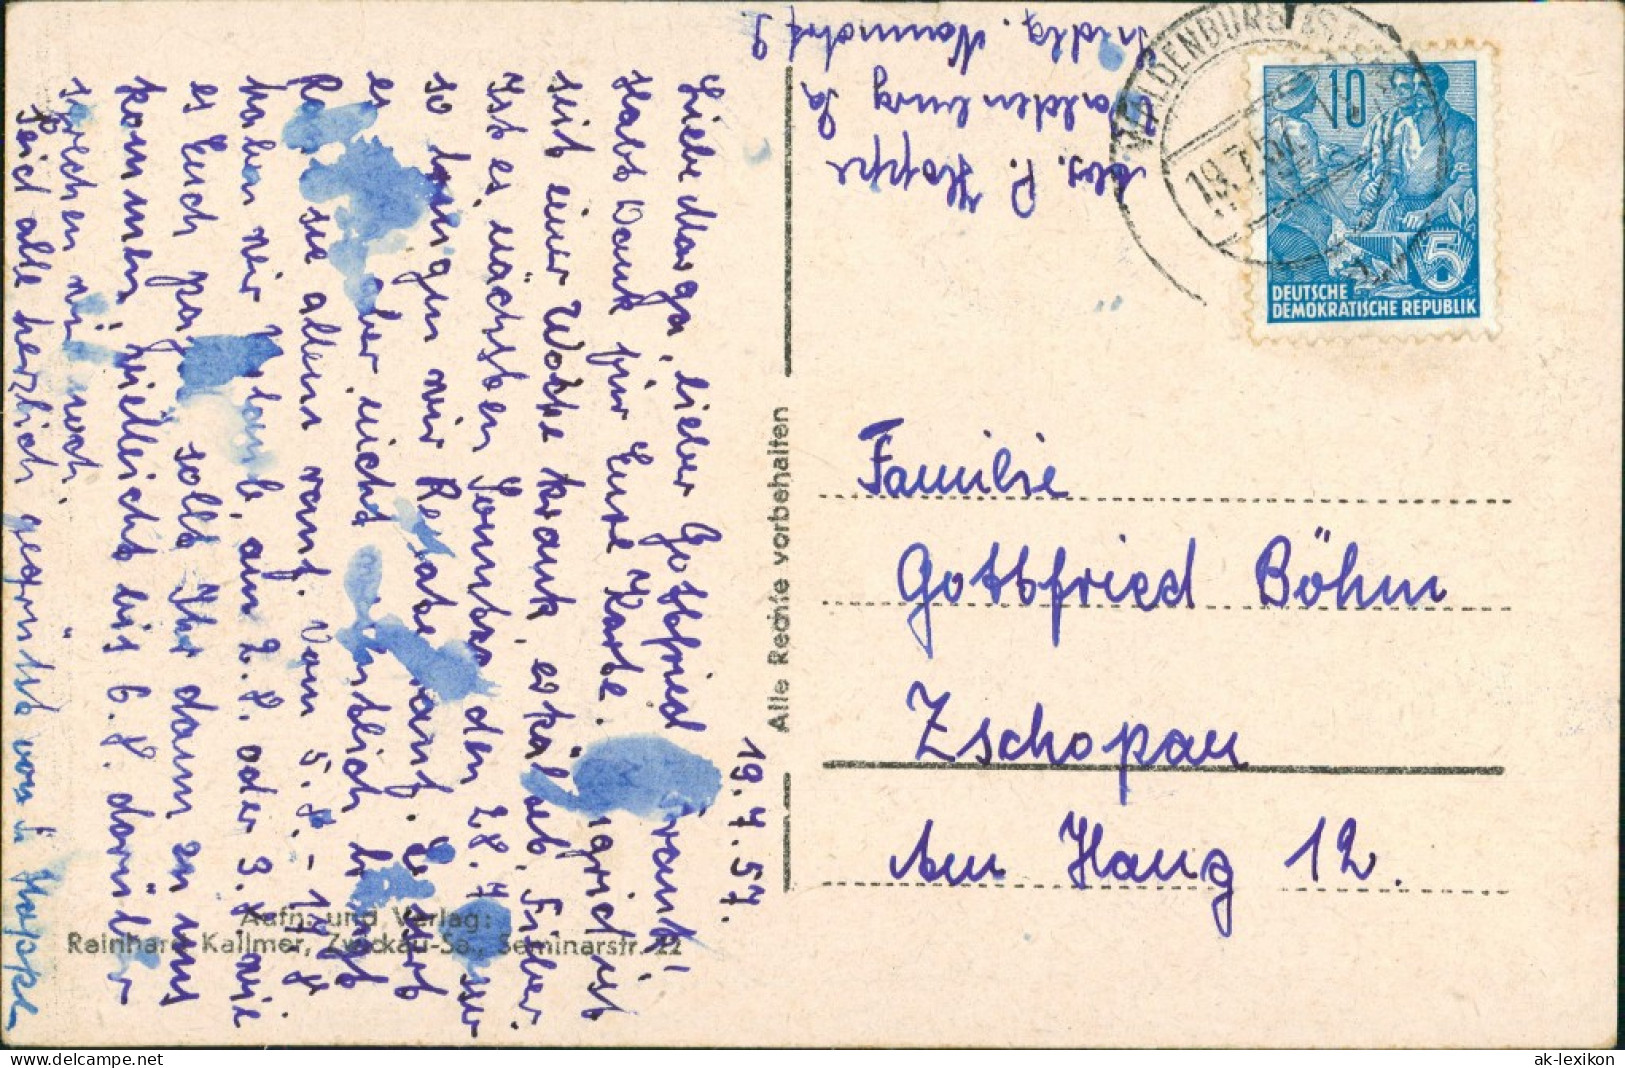 19.7.57.
Liebe Marga, lieber Gottfried, Frank,
Habt Dank für Eure Karte. ist
seit einer Woche krank, erkältet, Fieber
Ist es nächsten Sonntag den 28.7.
so bringen wir Renate rauf.
es aber nicht
sie allein rauf. Vom 5.8. - 17.8.
haben wir Urlaub, am 2.8. oder 3.8. wie
es Euch paßt sollt Ihr dann zu uns
kommen, vielleicht bis 6.8. darüber
sprechen wir noch.
Seid alle herzlich gegrüßt von Hoppes
Abs. P. Hoppe
Waldenburg Sa
9
WALDENBURG (SACHS)
19.7.57
10
5
DEUTSCHE
DEMOKRATISCHE REPUBLIK
Alle Rechte vorbehalten
Familie
Gottfried Böhm
Zschopau
Am Hang 12.
Aufn. und Verlag:
Reinhard Kallmer, Zwickau-Sa., Seminarstr. 22
ak-lexikon